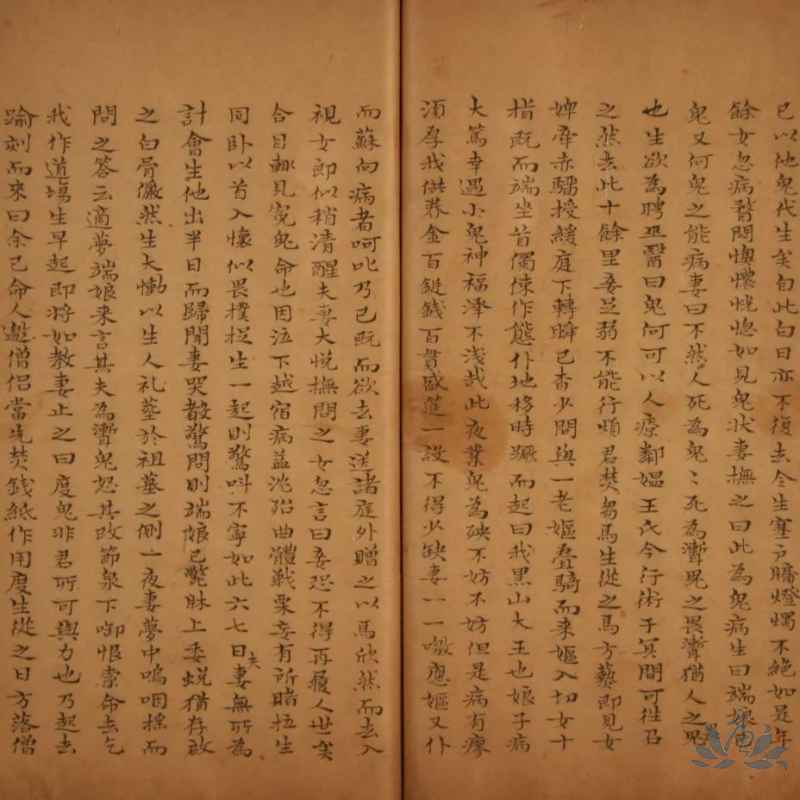 已以他鬼代生矣自此白日亦不復去令生塞户牖燈燭不絕如是年
餘女忽病瞀悶懊憹恍惚如見鬼狀妻撫之曰此為鬼病生曰端娘已
鬼又何鬼之能病妻曰不然人死為鬼〻死為聻鬼之畏聻猶人之畏鬼
也生欲為聘巫醫曰鬼何可以人療鄰媼王氏今行術于冥間可往召
之然去此十餘里妾足弱不能行煩君焚芻馬生從之馬方爇即見女
婢牽赤騮授綏庭下轉瞬已杳少間與一老嫗叠騎而来嫗入切女十
指既而端坐首㑛作態仆地移時蹶而起曰我黑山大王也娘子病
大篤幸遇小鬼神福澤不淺哉此夜業鬼為殃不妨不妨但是病有瘳
須厚我供養金百鋌錢百貫盛筵一設不得少缺妻一一噭應嫗又仆
而蘇向病者呵叱乃已既而欲去妻送諸庭外贈之以馬欣然而去入
視女郎似稍清醒夫妻大悅撫問之女忽言曰妾恐不得再履人世矣
合目輒見寃鬼命也因泣下越宿病益沈殆曲體戰栗妄有所睹拉生
同卧以首入懷似畏撲捉生一起則驚叫不寧如此六七日夫妻無所為
計會生他出半日而歸聞妻哭聲驚問則端娘已斃牀上委蛻猶存啟
之白骨儼然生大慟以生人礼葬於祖墓之側一夜妻夢中嗚咽搖而
問之答云適夢端娘來言其夫為聻鬼怒其改節泉下啣恨索命去乞
我作道場生早起即將如教妻止之曰度鬼非君所可與力也乃起去
踰刻而來曰余已命人邀僧侶當先焚錢紙作用度生從之日方落僧